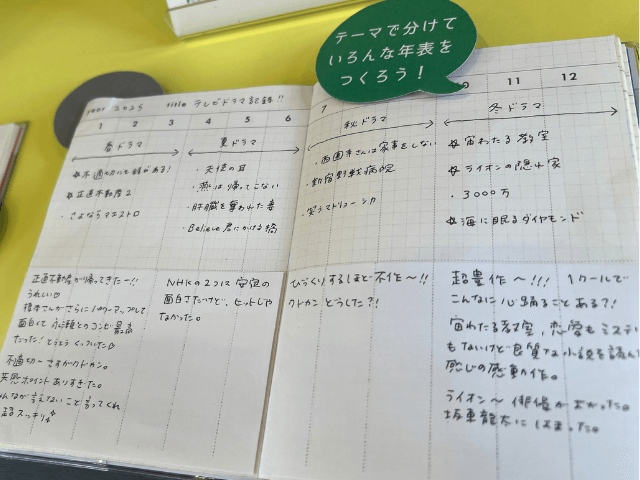 テーマで分けて
いろんな年表を
つくろう！
year 2025 title テレビドラマ記録!!
1 2 3 4 5 6
7 11 12
春ドラマ
夏ドラマ
秋ドラマ
冬ドラマ
不適切にも程がある！
正直不動産2
・さよならマエストロ
・天使の耳
・燕は帰ってこない
・肝臓を奪われた妻
・Believe 君にかける橋
・西園寺さんは家事をしない
・新宿野戦病院
・笑うマトリョーシカ
宙わたる教室
ライオンの隠れ家
・3000万
海に眠るダイヤモンド
正直不動産が帰ってきたー!!
うれしい
面白くて
だった！とうとうくっついた
不適切〜さすがクドカン。
共感ポイントありすぎた。
みんなが言えないこと言ってくれ
超スッキリ
NHKの2つは安定の
面白さだったけど、ヒットしゃ
なかった。
びっくりするほど不作〜!!
クドカンどうした?!
超豊作〜!!! 1クールで
こんなに心踊ることある?!
宙わたる教室、恋愛もミステ
もないけど良質な小説を読んだ
感じの感動作。
ライオン〜 俳優がよかった。
坂東龍太にはまった。